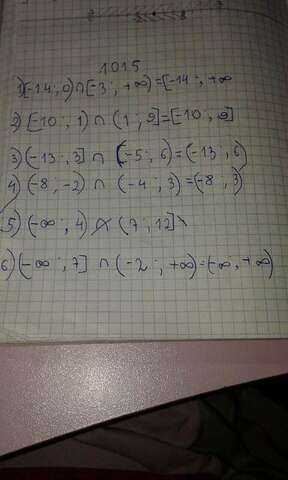 1015
1) [-14; 0) ∩ [-3; +∞) = [-14; +∞
2) [-10; 1) ∩ (1; 9] = [-10; 9]
3) (-13; 3] ∩ (-5; 6) = (-13; 6)
4) (-8; -2) ∩ (-4; 3) = (-8; 3)
5) (-∞; 4) ∩ (7; 12] \
6) (-∞; 7] ∩ (-2; +∞) = (-∞, +∞)